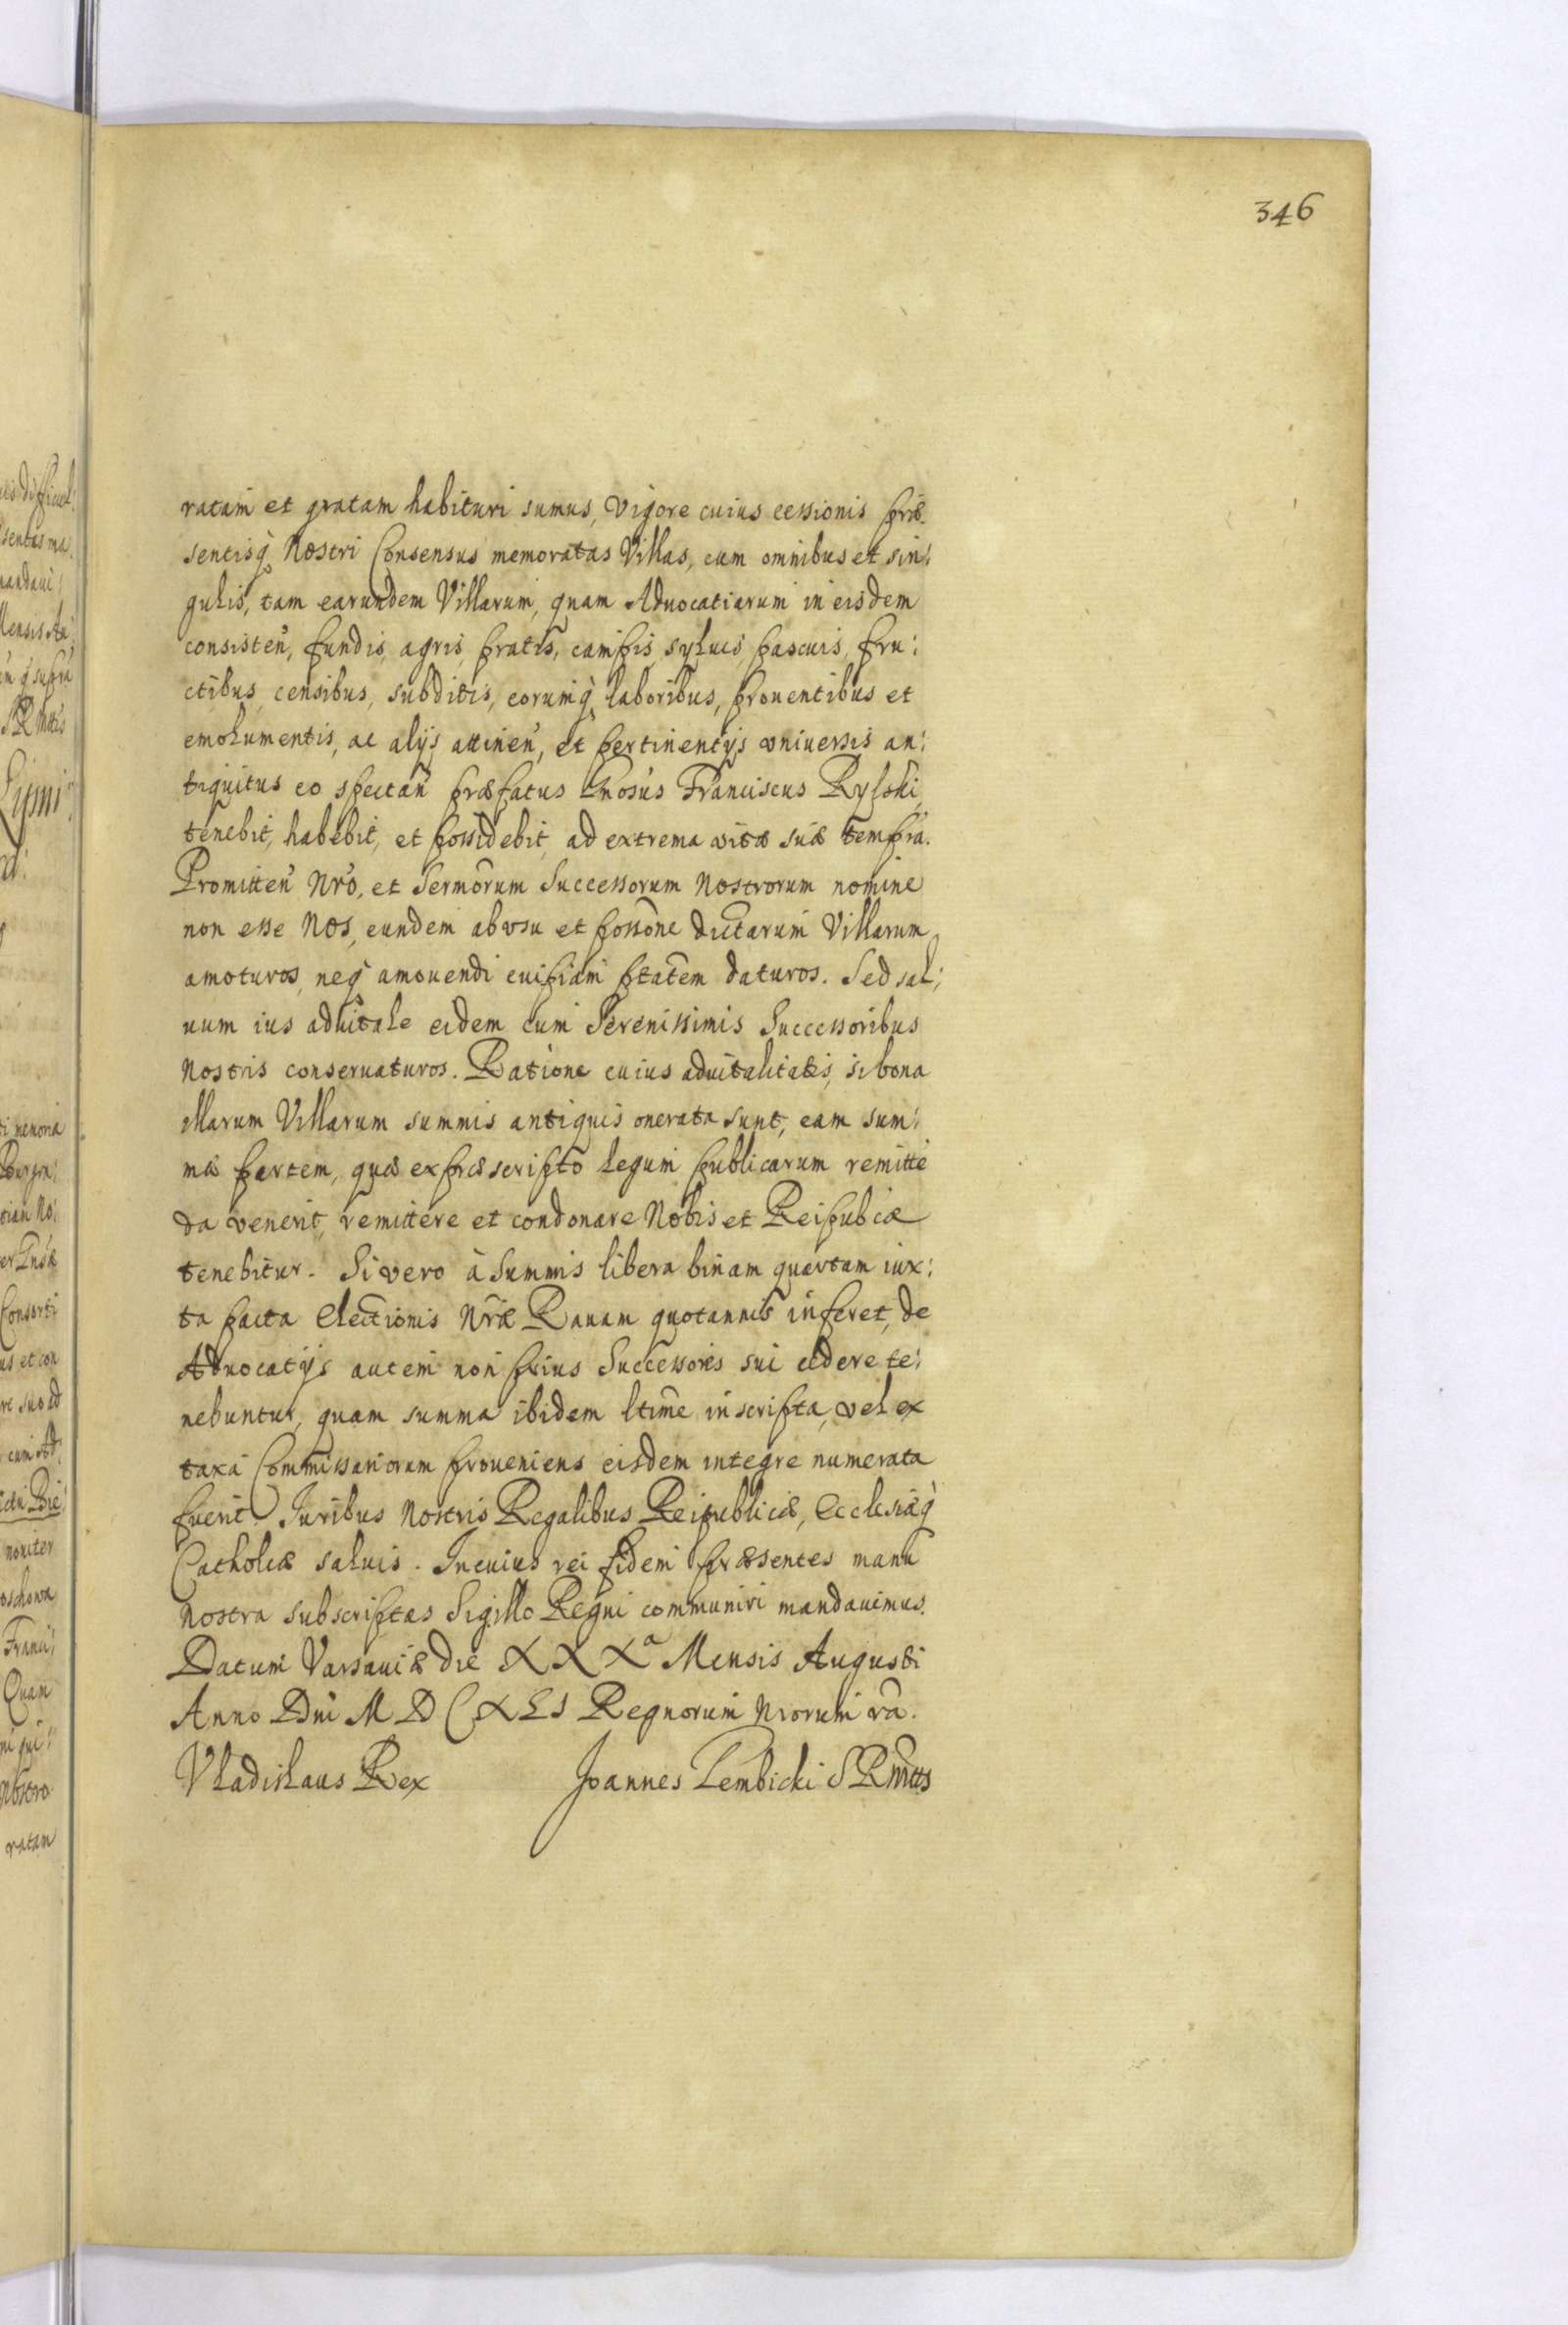 346
ratam et gratam habituri sumus, vigore cuius cessionis præ-
sentisq́ Nostri Consensus memoratas Villas, cum omnibus et sin:
gulis, tam earundem Villarum, quam Aduocatiarum in eisdem
consisteñ, fundis, agris, pratis, campis, syluis, pascuis, fru:
ctibus, censibus, subditis, eorumq́ laboribus, prouentibus et
emolumentis, ac alijs attineñ, et pertinentijs vniuersis an:
tiquitus eo spectañ præfatus Gnosus Franciscus Rylski,
tenebit, habebit, et possidebit, ad extrema vitæ suæ tempra.
Promitteñ Nro, et Sermorum Successorum Nostrorum nomine
non esse Nos, eundem ab vsu et possone dictarum Villarum
amoturos, neq́ amouendi cuipiam ptatem daturos. Sed sal:
uum ius aduitale eidem cum Serenissimis Successoribus
Nostris conseruaturos. Ratione cuius aduitalitatis, si bona
illarum Villarum summis antiquis onerata sunt, eam sum:
mæ partem, quæ ex præscripto legum publicarum remitte
da venerit, remittere et condonare Nobis et Reipubcæ
tenebitur. Si vero à summis libera binam quartam iux:
ta pacta Electionis Nræ Rauam quotannis inferet, de
Aduocatijs autem non prius Successores sui cedere te:
nebuntur, quam summa ibidem ltime inscripta, vel ex
taxa Commissariorum proueniens eisdem integre numerata
fuerit. Iuribus Nostris Regalibus Reipublicæ, Ecclesiæq́
Catholicæ saluis. In cuius rei fidem præsentes manu
nostra subscriptas Sigillo Regni communiri mandauimus.
Datum Varsauiæ die XXXa Mensis Augusti
Anno Dni MDCXLI Regnorum Nrorum ra.
Vladislaus Rex Joannes Lembicki S R Mttis